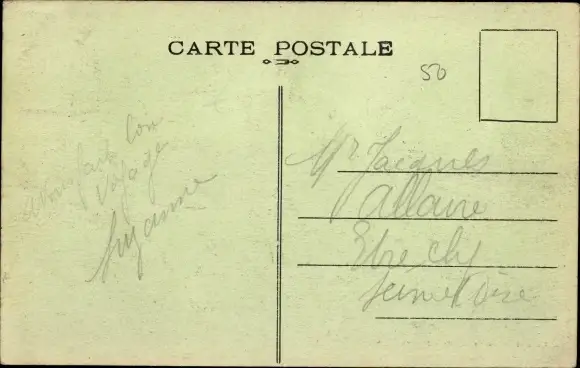 CARTE POSTALE
50
bon
voyage
Suzanne
Mr Jacques
Allaire
Etrechy
Seine et Oise